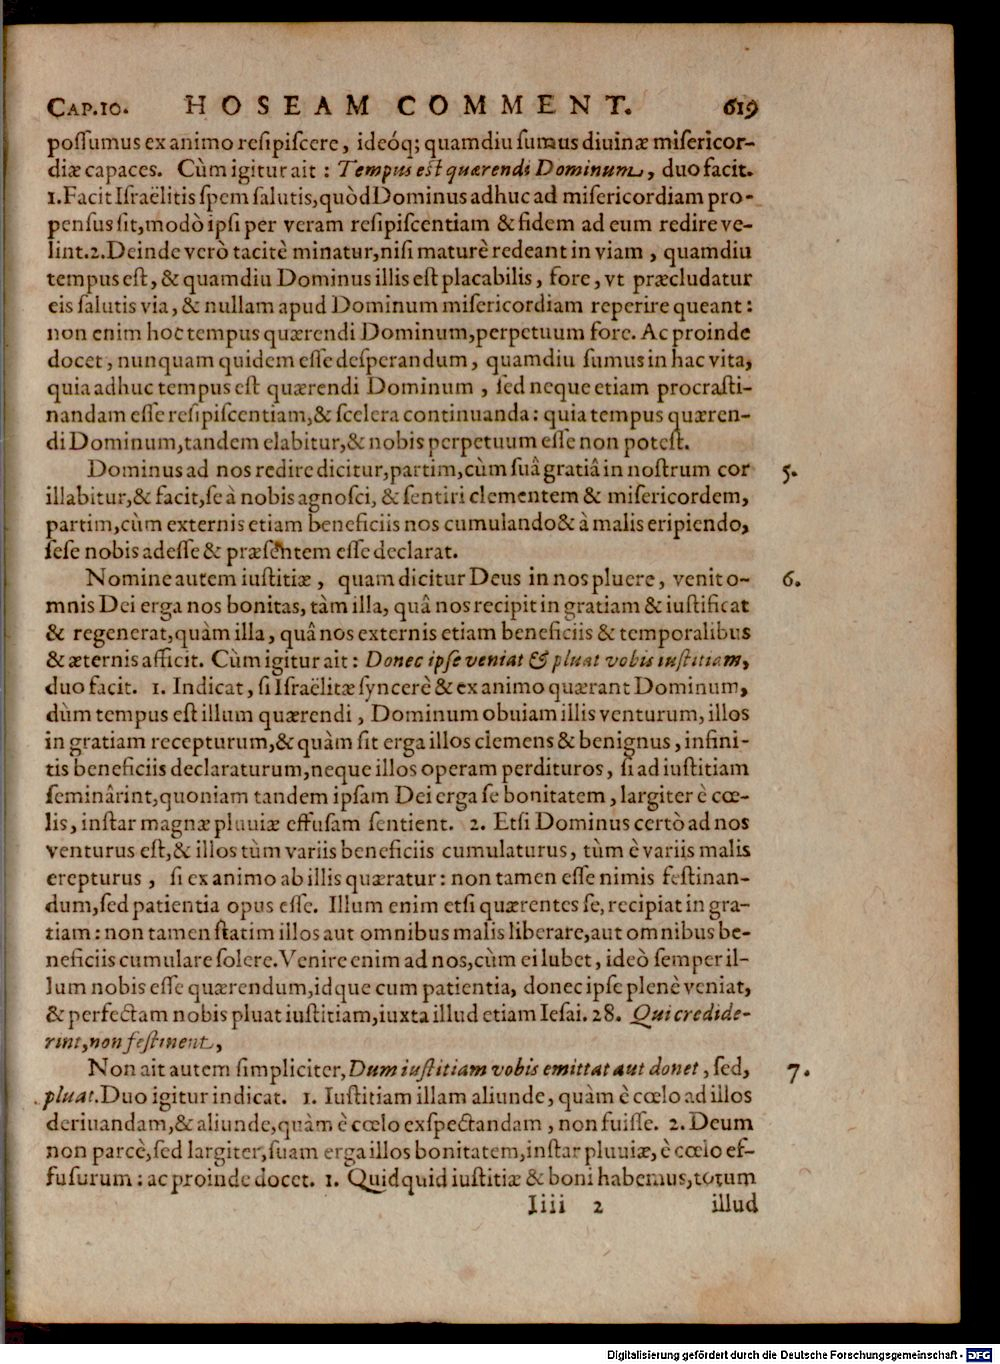 CAP.10. HOSEAM COMMENT. 619
poſſumus ex animo reſipiſcere, ideóq; quamdiu ſumus diuinæ miſericor-
diæ capaces. Cùm igitur ait: Tempus eſt quærendi Dominum, duo facit.
1.Facit Iſraëlitis ſpem ſalutis, quòd Dominus adhuc ad miſericordiam pro-
penſus ſit, modò ipſi per veram reſipiſcentiam & fidem ad eum redire ve-
lint.2.Deinde verò tacitè minatur, niſi maturè redeant in viam, quamdiu
tempus eſt, & quamdiu Dominus illis eſt placabilis, fore, vt præcludatur
eis ſalutis via, & nullam apud Dominum miſericordiam reperire queant:
non enim hoc tempus quærendi Dominum, perpetuum fore. Ac proinde
docet, nunquam quidem eſſe deſperandum, quamdiu ſumus in hac vita,
quia adhuc tempus eſt quærendi Dominum, ſed neque etiam procraſti-
nandam eſſe reſipiſcentiam, & ſcelera continuanda: quia tempus quæren-
di Dominum, tandem elabitur, & nobis perpetuum eſſe non poteſt.
Dominus ad nos redire dicitur, partim, cùm ſuâ gratiâ in noſtrum cor 5.
illabitur, & facit, ſe à nobis agnoſci, & ſentiri clementem & miſericordem,
partim, cùm externis etiam beneficiis nos cumulando & à malis eripiendo,
ſeſe nobis adeſſe & præſentem eſſe declarat.
Nomine autem iuſtitiæ, quam dicitur Deus in nos pluere, venit o- 6.
mnis Dei erga nos bonitas, tàm illa, quâ nos recipit in gratiam & iuſtificat
& regenerat, quàm illa, quâ nos externis etiam beneficiis & temporalibus
& æternis afficit. Cùm igitur ait: Donec ipſe veniat & pluat vobis iuſtitiam,
duo facit. 1. Indicat, ſi Iſraëlitæ ſyncerè & ex animo quærant Dominum,
dùm tempus eſt illum quærendi, Dominum obuiam illis venturum, illos
in gratiam recepturum, & quàm ſit erga illos clemens & benignus, infini-
tis beneficiis declaraturum, neque illos operam perdituros, ſi ad iuſtitiam
ſeminârint, quoniam tandem ipſam Dei erga ſe bonitatem, largiter è cœ-
lis, inſtar magnæ pluuiæ effuſam ſentient. 2. Etſi Dominus certò ad nos
venturus eſt, & illos tùm variis beneficiis cumulaturus, tùm è variis malis
erepturus, ſi ex animo ab illis quæratur: non tamen eſſe nimis feſtinan-
dum, ſed patientia opus eſſe. Illum enim etſi quærentes ſe, recipiat in gra-
tiam: non tamen ſtatim illos aut omnibus malis liberare, aut omnibus be-
neficiis cumulare ſolere. Venire enim ad nos, cùm ei lubet, ideò ſemper il-
lum nobis eſſe quærendum, idque cum patientia, donec ipſe plenè veniat,
& perfectam nobis pluat iuſtitiam, iuxta illud etiam Ieſai. 28. Qui credide-
rint, non feſtinent,
Non ait autem ſimpliciter, Dum iuſtitiam vobis emittat aut donet, ſed, 7.
pluat. Duo igitur indicat. 1. Iuſtitiam illam aliunde, quàm è cœlo ad illos
deriuandam, & aliunde, quàm è cœlo exſpectandam, non fuiſſe. 2. Deum
non parcè, ſed largiter, ſuam erga illos bonitatem, inſtar pluuiæ, è cœlo ef-
fuſurum: ac proinde docet. 1. Quidquid iuſtitiæ & boni habemus, totum
Iiii 2 illud
Digitalisierung gefördert durch die Deutsche Forschungsgemeinschaft - DFG